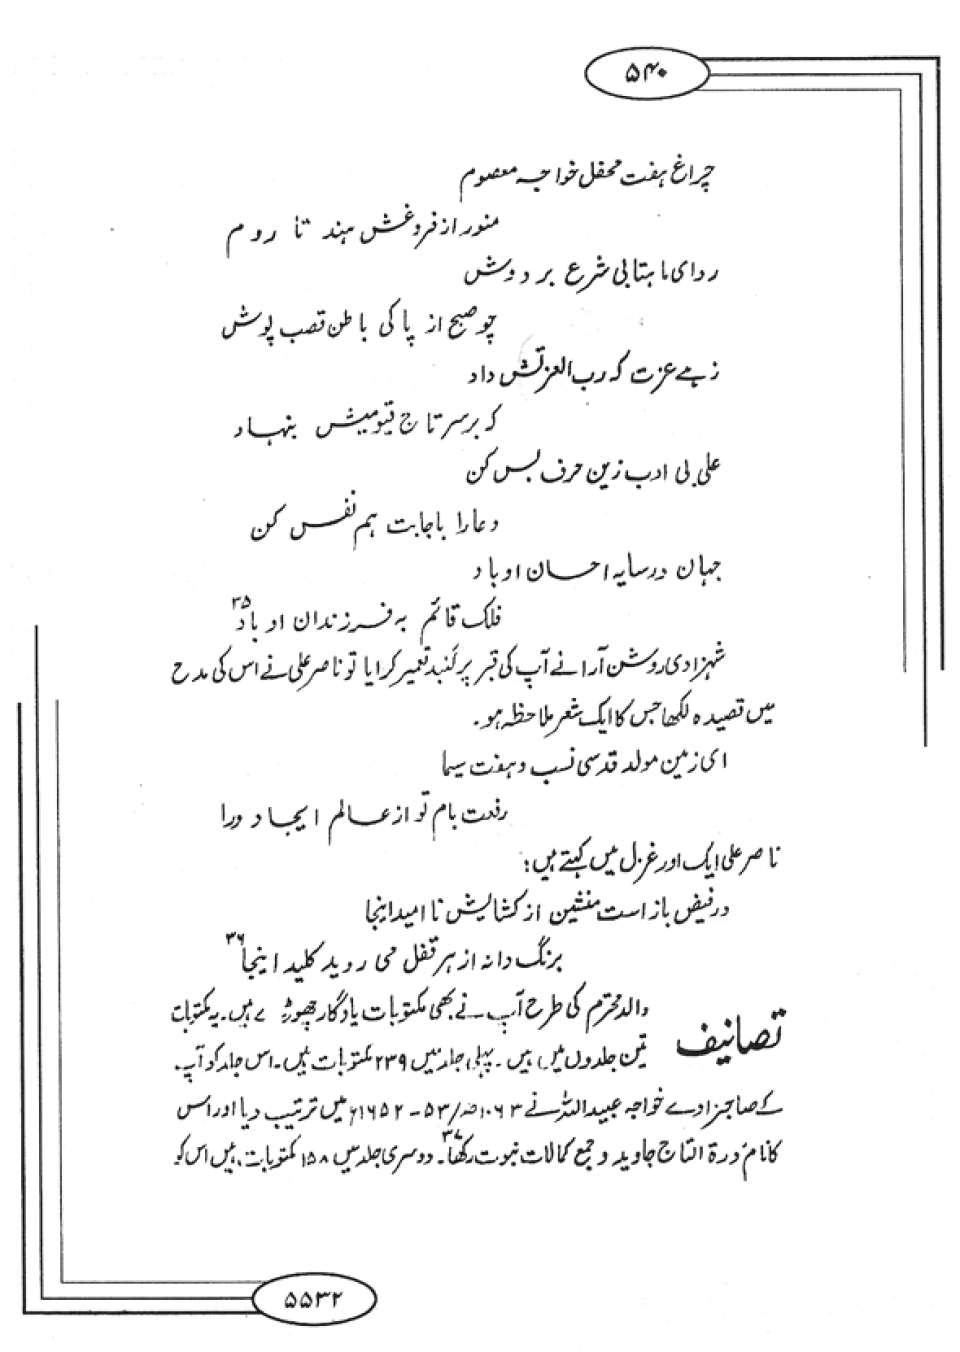 ۵۴۰
چراغ ہفت محفل خواجہ معصوم
منور از فروغش ہند تا روم
ردای ماہتابی شرع بر دوش
چو صبح از پاکی باطن قصب پوش
زہے عزت کہ رب العزتش داد
کہ بر سر تاج قیومیش بنہاد
علی بی ادب زین حرف بس کن
دعا را باجابت ہم نفس کن
جہان در سایہ احسان او باد
فلک قائم بہ فرزندان او باد ۳۵
شہزادی روشن آرا نے آپ کی قبر پر گنبد تعمیر کرایا تو ناصر علی نے اس کی مدح
میں قصیدہ لکھا جس کا ایک شعر ملاحظہ ہو۔
ای زمین مولد قدسی نسب و ہفت سیما
رفعت بام تو از عالم ایجاد ورا
ناصر علی ایک اور غزل میں کہتے ہیں:
در فیض باز است منشین از کشایش نا امید اینجا
برنگ دانہ از ہر قفل می روید کلید اینجا ۳۶
تصانیف والد محترم کی طرح آپ نے بھی مکتوبات یادگار چھوڑے ہیں۔ یہ مکتوبات
تین جلدوں میں ہیں۔ پہلی جلد میں ۲۳۹ مکتوبات ہیں۔ اس جلد کو آپ
کے صاحبزادے خواجہ عبیداللہ نے ۱۰۶۳ھ/۵۳-۱۶۵۲ء میں ترتیب دیا اور اس
کا نام درۃ التاج جاوید و جمع کمالات نبوت رکھا۔ ۳۷ دوسری جلد میں ۱۵۸ مکتوبات ہیں اس کو
۵۵۳۲